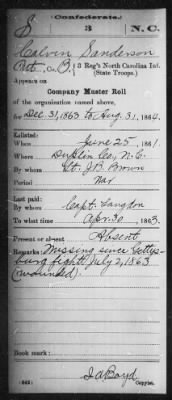 Confederate.
S 3 N.C.
Calvin Sanderson
Pvt, Co. B, 3 Reg't North Carolina Inf.
(State Troops.)
Appears on
Company Muster Roll
of the organization named above,
for Dec. 31, 1863 to Aug. 31, 1864.
Enlisted:
When June 25, 1861.
Where Duplin Co, N.C.
By whom Lt. J.B. Brown
Period War
Last paid:
By whom Capt. Langdon
To what time Apr. 30, 1863.
Present or absent Absent
Remarks: Missing since Gettys-
burg fight July 2, 1863
(wounded).
Book mark:
(642) J A Boyd
Copyist.